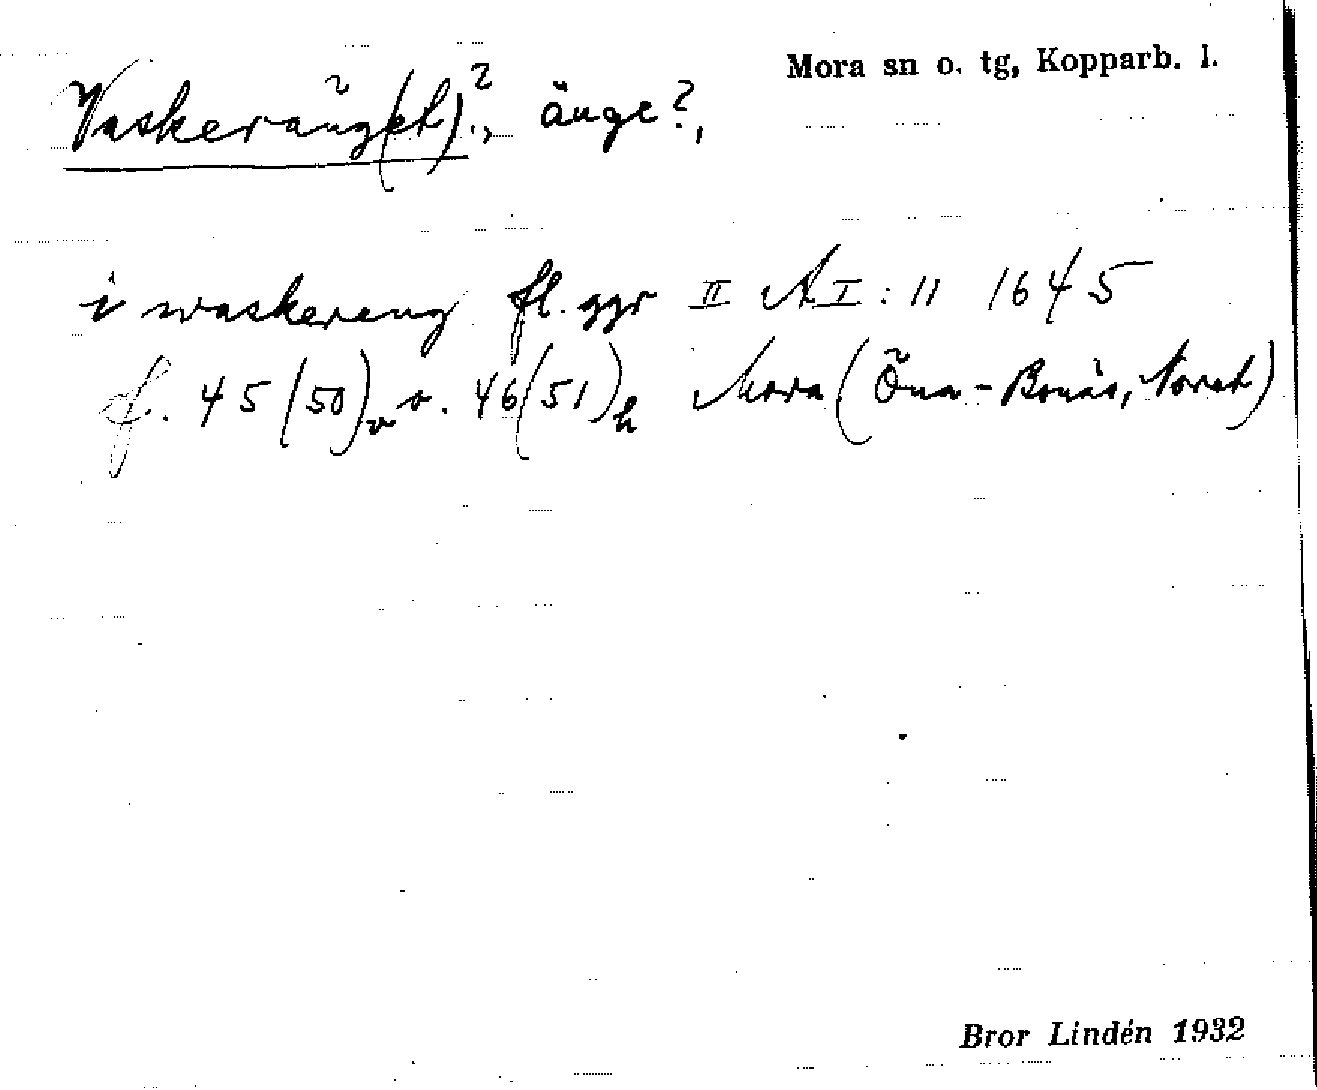 Mora sn o. tg, Kopparb. l.
Vaskeräng(et)?, änge?,
i waskereng fl. ggr II A I : 11 1645
f. 45 (50)v o. 46 (51)h Mora (Öna-Bonäs, Noret)
Bror Lindén 1932